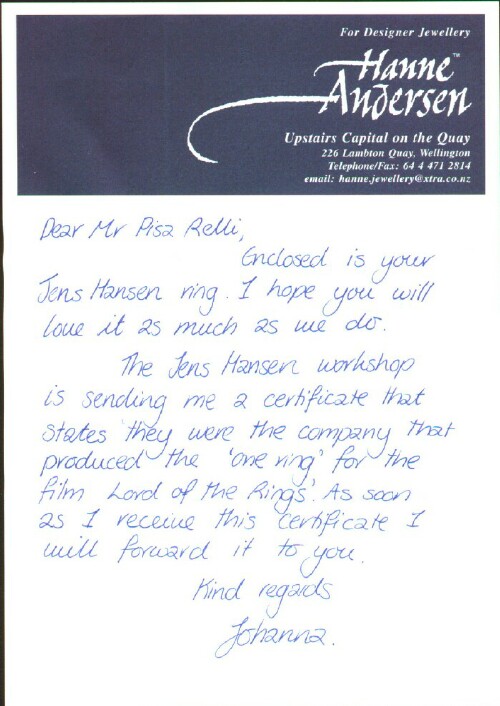 For Designer Jewellery
Hanne™
Andersen
Upstairs Capital on the Quay
226 Lambton Quay, Wellington
Telephone/Fax: 64 4 471 2814
email: hanne.jewellery@xtra.co.nz
Dear Mr Pisa Relli,
Enclosed is your
Jens Hansen ring. I hope you will
love it as much as we do.
The Jens Hansen workshop
is sending me a certificate that
states they were the company that
produced the 'one ring' for the
film Lord of the Rings'. As soon
as I receive this certificate I
will forward it to you.
Kind regards
Johanna.